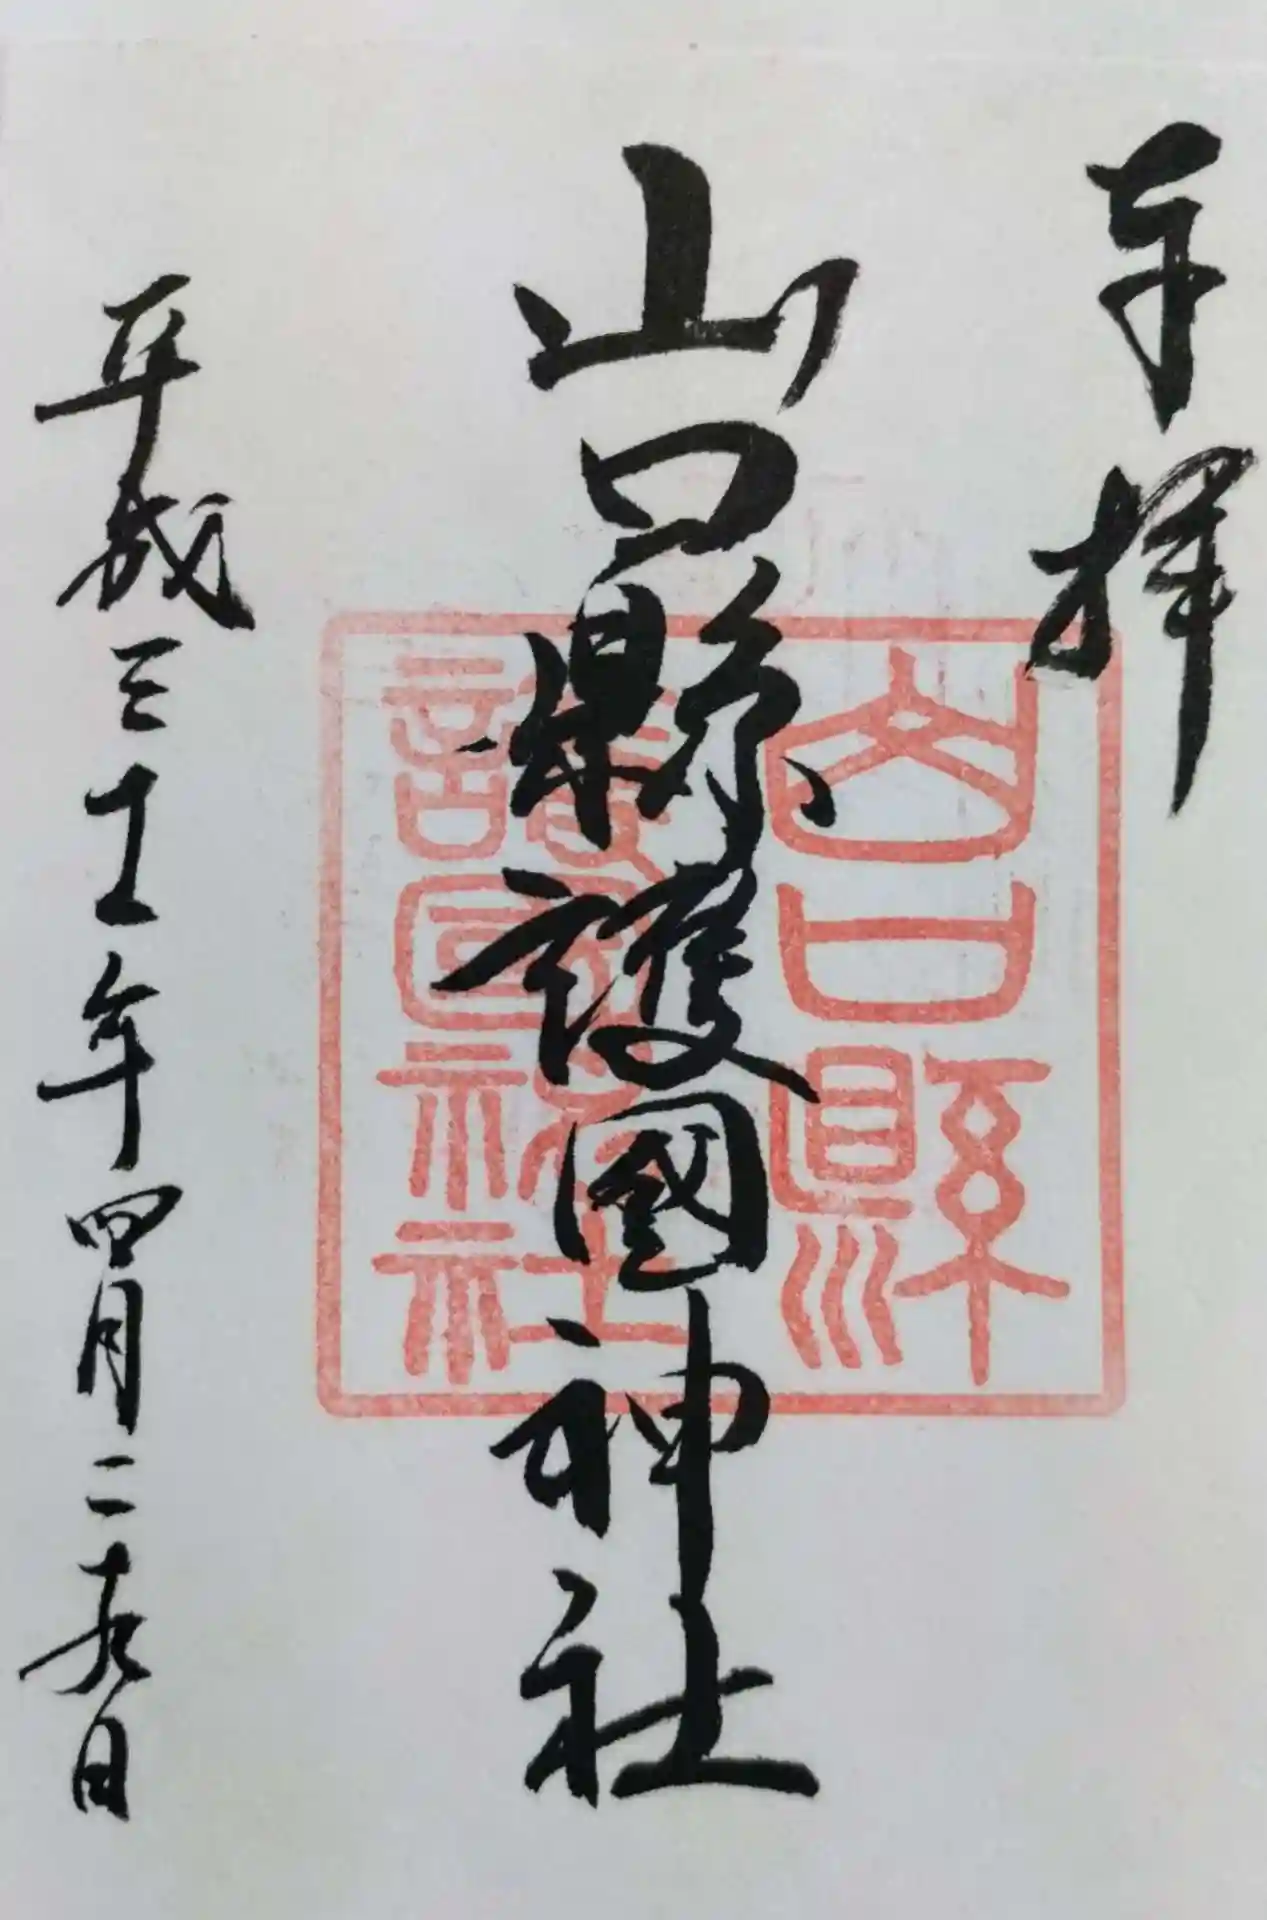 奉拝
山口縣護國神社
平成三十一年四月二十九日
山口縣
護國神社